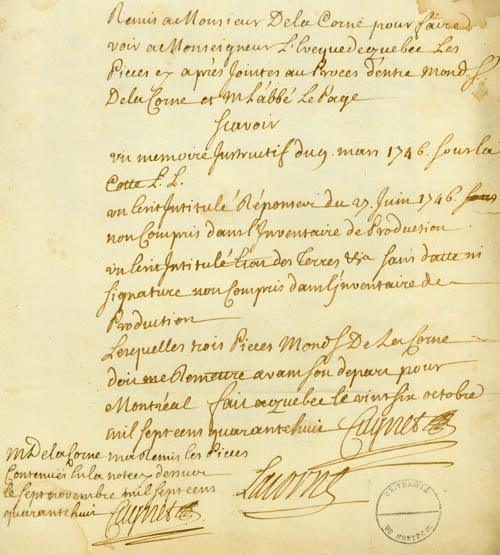 Remis a Monsieur De la Corne pour faire
voir a Monseigneur L'Evequedequebec Les
Pieces cy après Jointes au Procés d'entre Mond. S.
De la Corne et M. L'abbé Le Page
Scavoir
un memoire Instructif du 9. mars 1746. sous la
Cotte L. L.
un Ecrit Intitulé Réponse du 27. Juin 1746.
non Compris dans l'Inventaire de Production
un Ecrit Intitulé des Terres &a sans datte ni
signature non Compris dans l'inventaire de
Production
Lesquelles trois Pieces Mond. S. De La Corne
doit me Remettre avant son depart pour
Montréal fait a quebec le vint six octobre
mil sept cens quarante huit Cugnet
M. De la Corne ma Remis les Pieces
Contenues En la note cy dessus
le sept novembre mil sept cens
quarante huit Cugnet
Lacorne
UNIVERSITÉ
DE MONTRÉAL